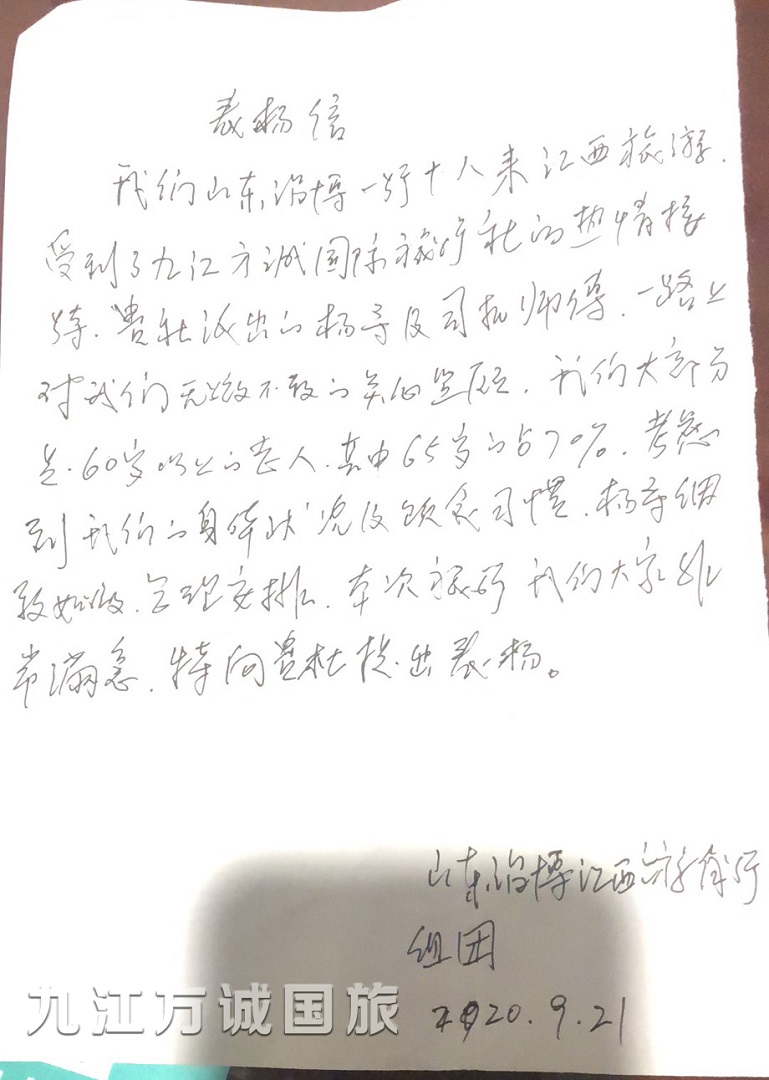 表扬信
我们山东淄博一行十人来江西旅游.
受到了九江万诚国际旅行社的热情接
待.贵社派出的杨导及司机师傅.一路上
对我们无微不致的关怀照顾.我们大部分
是.60岁以上的老人.其中65岁的占70%.考虑
到我们的身体状况及饮食习惯.杨导细
致如微.合理安排.本次旅行我们大家非
常满意.特向贵社提出表扬。
山东淄博江西行
组团
2020.9.21
九江万诚国旅